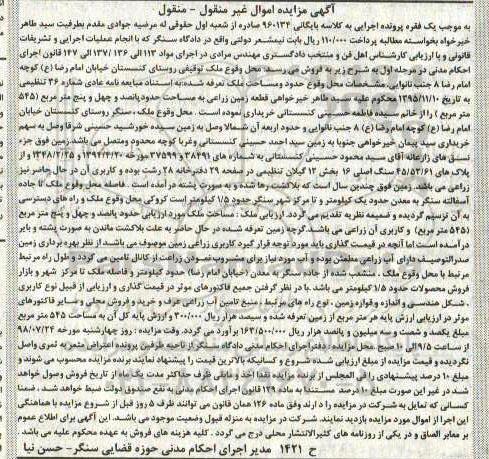 آگهی مزایده اموال غیر منقول - منقول
به موجب یک فقره پرونده اجرایی به کلاسه بایگانی ۹۶۰۱۳۴ صادره از شعبه اول حقوقی له مرضیه جوادی مقدم بطرفیت سید طاهر
خیرخواه بخواسته مطالبه پرداخت ۱۱۰/۰۰۰ ریال بابت نیمعشر دولتی واقع در دادگاه سنگر که با انجام عملیات اجرایی و تشریفات
قانونی و با ارزیابی کارشناس اهل فن و منتخب دادگستری مهندس مرادی در اجرای مواد ۱۱۳ الی ۱۳۶ / ۱۳۷ الی ۱۴۷ قانون اجرای
احکام مدنی در مرحله اول به شرح زیر به فروش می رسد. محل وقوع ملک توقیفی روستای کنستان خیابان امام رضا (ع) کوچه
امام رضا ۸ جنب نانوایی. مشخصات محل وقوع حدود ومساحت ملک تعرفه شده: به استناد مبایعه نامه عادی شماره ۳۶ تنظیمی
به تاریخ ۱۳۹۵/۱۱/۱۰ محکوم علیه سید طاهر خیرخواهی قطعه زمین زراعی به مساحت حدود پانصد و چهل و پنج متر مربع (۵۴۵
متر مربع) را از خانم سیده فاطمه حسینی کنستانی خریداری نموده است. محل وقوع ملک، سنگر روستای کنستان خیابان
امام رضا (ع) کوچه امام رضا (ع) ۸ جنب نانوایی و حدود اربعه آن: شمالا وصل به زمین سیده خورشید حسینی شرقا وصل به سهم
خریداری سید پیمان خیرخواهی جنوبا به زمین سید احمد حسینی کنستانی وغربا کوچه محدود ومتصل می باشد. زمین فوق جزء
نسق های زارعانه آقای سید محمود حسینی کنستانی به شماره های ۳۸۴۹۱ و ۲۷۵۹۹ مورخه ۱۳۴۴/۴/۳۰ و ۱۳۴۸/۲/۲۵ و از
پلاک های ۴۵/۵۳/۶۱ سنگ اصلی ۱۶ بخش ۱۲ گیلان تنظیمی در صفحه ۲۹ دفترخانه ۲۸ رشت بوده و کاربری آن در حال حاضر نیز
زراعی می باشد. زمین فوق چندین سال است که بلاکشت رها شده و به صورت پشته در آمده است. فاصله محل وقوع ملک تا جاده
آسفالته سنگر به معدن حدود یک کیلومتر و تا مرکز شهر سنگر حدود ۱/۵ کیلومتر است کروکی محل وقوع ملک و راه های دسترسی
به آن ترسیم گردیده و ضمیمه نظریه تقدیم می گردد. ارزیابی ملک: مساحت ملک مورد ارزیابی حدود پانصد و چهل و پنج متر مربع
(۵۴۵ متر مربع) و کاربری آن زراعی می باشد. گرچه زمین تعرفه شده در حال حاضر به علت بلاکشت ماندن به صورت پشته و بایر
در آمده است اما آنچه در قیمت گذاری باید مورد توجه قرار گیرد کاربری زراعی زمین موصوف می باشد. از نظر بهره برداری زمین
صدرالتوصیف دارای آب زراعی مطمئن بوده و آب مورد نیاز برای مشروب نمودن زراعت از کانال تامین می گردد و طول راه مرتبط
مرتبط با محل وقوع ملک، منشعب شده از جاده سنگر به معدن (خیابان امام رضا) حدود کیلومتر و فاصله ملک تا مرکز شهر و بازار
فروش محصولات حدود ۱/۵ کیلومتر می باشد. با در نظر گرفتن جمیع فاکتورهای موثر در قیمت گذاری و ارزیابی از قبیل نوع کاربری
، شکل هندسی و اندازه وقواره زمین، نوع راه های مرتبط، منبع تامین آب زراعی عرف و خرید و فروش محلی و سایر فاکتورهای
موثر در ارزیابی ارزش پایه هر متر مربع از زمین تعرفه شده و سیصد هزار ریال ۳۰۰/۰۰۰ و ارزش پایه کل آن به مساحت ۵۴۵ متر مربع
مبلغ یکصد و شصت و سه میلیون و پانصد هزار ریال ۱۶۳/۵۰۰/۰۰۰ برآورد می گردد. وقت مزایده: روز چهارشنبه مورخه ۹۸/۰۷/۲۴
از ساعت ۹/۵ الی ۱۰ صبح محل مزایده: دفتر اجرای احکام مدنی دادگاه سنگر از ناحیه طرفین پرونده اعتراض مثمر به ثمری واصل
نگردیده و قیمت مزایده از مبلغ ارزیابی شده شروع و کسانیکه بالاترین قیمت را پیشنهاد نمایند برنده مزایده محسوب می شوند و
مبلغ ۱۰ درصد پیشنهادی را فی المجلس از برنده مزایده نقدا اخذ و مابقی ظرف حداکثر مدت یک ماه از تاریخ فروش وصول خواهد
شد در غیر این صورت مبلغ ۱۰ درصد مستندا به ماده ۱۲۹ قانون اجرای احکام مدنی به نفع صندوق دولت ضبط خواهد شد. ضمنا
کسانی که تمایل به شرکت در مزایده را دارند وفق ماده ۱۲۶ همان قانون می توانند ظرف ۵ روز قبل از شروع مزایده با هماهنگی
این اجرا از اموال مورد مزایده بازدید نمایند. شرکت در مزایده به منزله قبول وضعیت موجود می باشد. این آگهی برای اطلاع عموم
بر معابر الصاق و در یکی از روزنامه های کثیرالانتشار محلی درج می گردد. کلیه هزینه های فروش به عهده محکوم علیه می باشد.
ح ۱۴۲۱ مدیر اجرای احکام مدنی حوزه قضایی سنگر - حسن نیا